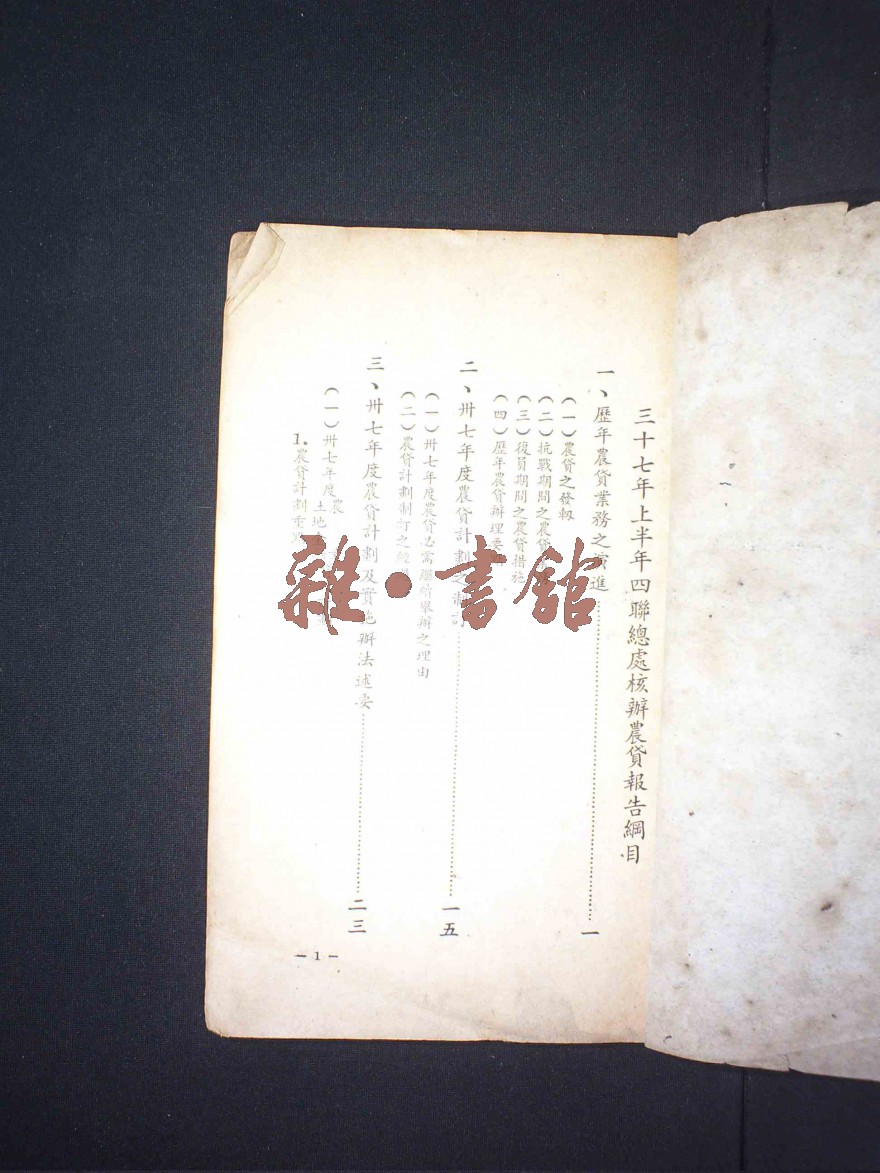 三十七年上半年四聯總處核辦農貸報告綱目
一、歷年農貸業務之演進……一
(一)農貸之發軔
(二)抗戰期間之農貸
(三)復員期間之農貸措施
(四)歷年農貸辦理要
二、卅七年度農貸計劃之制訂……一五
(一)卅七年度農貸必需繼續舉辦之理由
(二)農貸計劃制訂之經
三、卅七年度農貸計劃及實施辦法述要……二三
(一)卅七年度農
土地
1.農貸計劃重
— 1 —
雜·書館